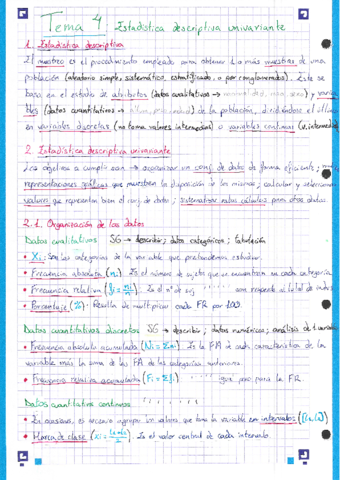 Tema 4: Estadística descriptiva univariante
1. Estadística descriptiva
El muestreo es el procedimiento empleado para obtener 1 o más muestras de una
población (aleatorio simple, sistemático, estratificado, o por conglomerados). Este se
basa en el estudio de atributos (datos cualitativos → normalidad, raza, sexo) y varia
bles (datos cuantitativos → ) de la población, dividiéndose el últim
en variables discretas (no toma valores intermedios) o variables continuas (v. intermedi
2. Estadística descriptiva univariante
Los objetivos a cumplir son → organizar un conj. de datos de forma eficiente;
representaciones gráficas que muestren la disposición de los mismos; calcular y seleccionar
valores que representen bien el conj. de datos; sistematizar estos cálculos para otros datos.
2.1. Organización de los datos
Datos cualitativos SG → describir; datos categóricos; tabulación
• Xi: Son las categorías de la variable que pretendemos estudiar.
• Frecuencia absoluta (ni) Es el número de sujetos que se encuentran en cada categoría
• Frecuencia relativa (fi = ni/n) Es el nº de con respecto al total de indiv
• Porcentaje (%) Resulta de multiplicar cada FR por 100.
Datos cuantitativos discretos SG → describir; datos numéricos; análisis de 1 variable
• Frecuencia absoluta acumulada (Ni = Σni) Es la FA de cada característica de la
variable más la suma de las FA de las categorías anteriores.
• Frecuencia relativa acumulada (Fi = Σfi) igual pero para la FR.
Datos cuantitativos continuos
• En ocasiones, es necesario agrupar los valores que toma la variable en intervalos
• Marca de clase Es el valor central de cada intervalo.